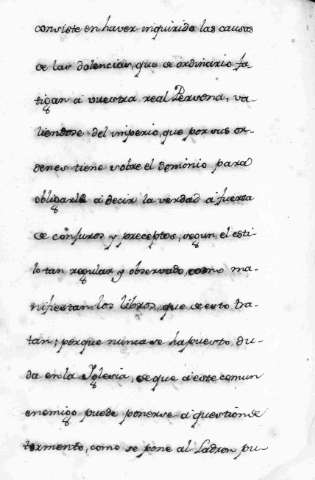 consiste en haver inquirido las causas
de las dolencias, que de ordinario fa-
tigan a vuestra real Persona, va-
liendose del imperio, que por sus or-
denes tiene sobre el demonio para
obligarle a decir la verdad a fuerza
de conjuros y preceptos, segun el esti-
lo tan regular y observado, como ma-
nifiestan los libros, que de esto tra-
tan; porque nunca se ha puesto du-
da en la Iglesia, de que a este comun
enemigo puede ponerse a question de
tormento, como se pone al Ladron pu-